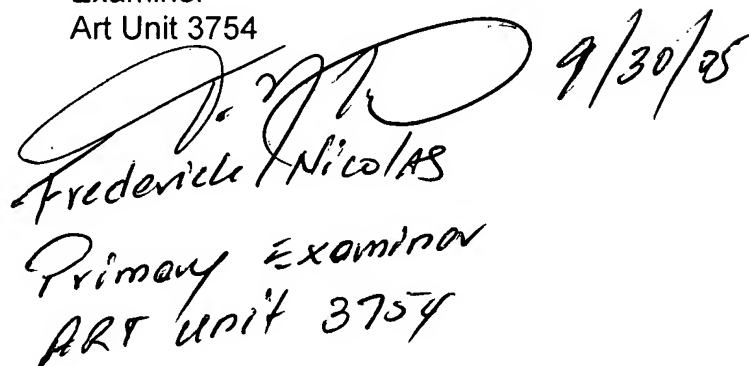 Examiner
Art Unit 3754
9/30/05
Frederick Nicolas
Primary Examiner
ART Unit 3754